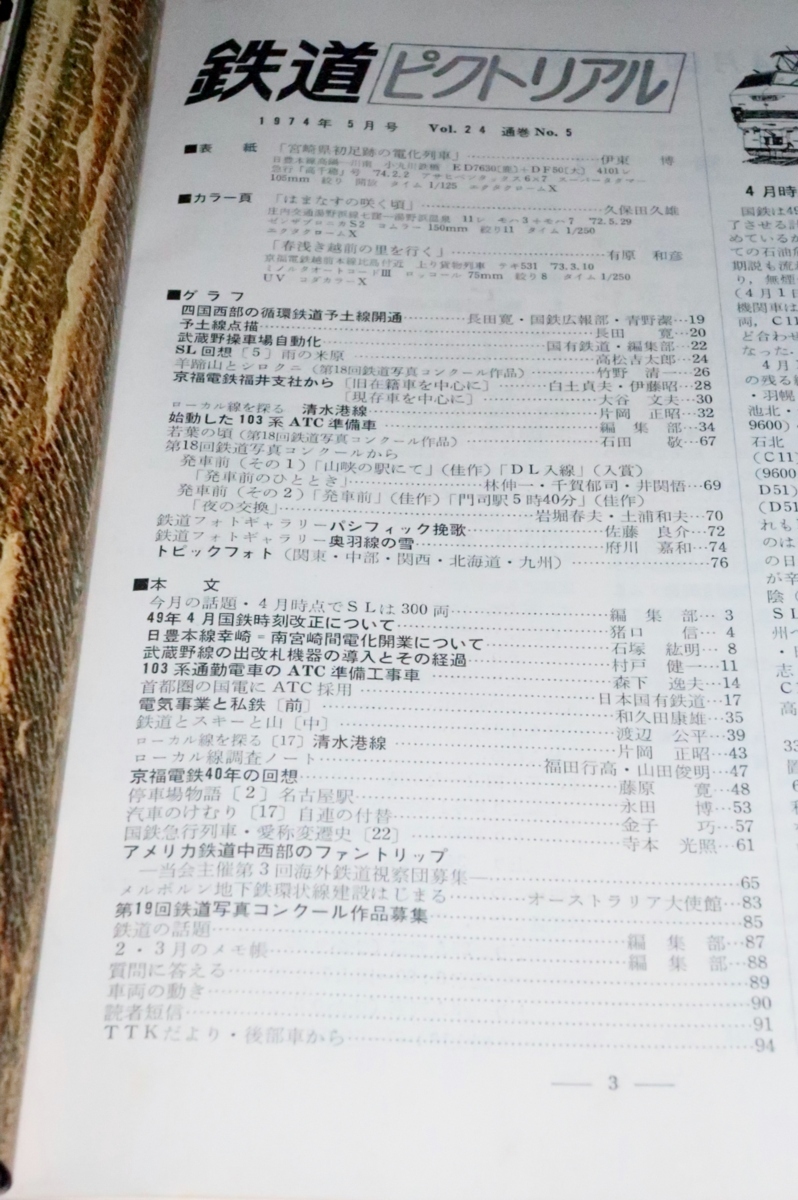 鉄道ピクトリアル
1974年 5月号 Vol. 24 通巻 No. 5
■表 紙 「宮崎県初足跡の電化列車」……伊東 博
日豊本線高鍋―川南 小丸川鉄橋 ED7630(重)+DF50(大) 4101レ
急行「高千穂」号 '74.2.2 アサヒペンタックス6×7 スーパータクマー
105mm 絞り 開放 タイム 1/125 エクタクロームX
■カラー頁 「はまなすの咲く頃」……久保田久雄
庄内交通湯野浜線七窪―湯野浜温泉 11レ モハ3+モハ7 '72.5.29
ゼンザブロニカS2 コムラー 150mm 絞り11 タイム 1/250
エクタクロームX
「春浅き越前の里を行く」……有原 和彦
京福電鉄越前本線比島付近 上り貨物列車 テキ531 '73.3.10
ミノルタオートコードⅢ ロッコール 75mm 絞り8 タイム 1/250
UV コダカラーX
■グラフ
四国西部の循環鉄道予土線開通……長田寛・国鉄広報部・青野潔…19
予土線点描……長田 寛…20
武蔵野操車場自動化……国有鉄道・編集部…22
SL回想〔5〕雨の米原……高松吉太郎…24
羊蹄山とシロクニ(第18回鉄道写真コンクール作品)……竹野 清一…26
京福電鉄福井支社から〔旧在籍車を中心に〕……白土貞夫・伊藤昭…28
〔現存車を中心に〕……大谷 文夫…30
ローカル線を探る 清水港線……片岡 正昭…32
始動した103系ATC準備車……編 集 部…34
若葉の頃(第18回鉄道写真コンクール作品)……石田 敬…67
第18回鉄道写真コンクールから
発車前(その1)「山峡の駅にて」(佳作)「DL入線」(入賞)
「発車前のひととき」……林伸一・千賀郁司・井関悟…69
発車前(その2)「発車前」(佳作)「門司駅5時40分」(佳作)
「夜の交換」……岩堀春夫・土浦和夫…70
鉄道フォトギャラリー パシフィック挽歌……佐藤 良介…72
鉄道フォトギャラリー 奥羽線の雪……府川 嘉和…74
トピックフォト(関東・中部・関西・北海道・九州)……76
■本 文
今月の話題・4月時点でSLは300両……編 集 部… 3
49年4月国鉄時刻改正について……猪口 信… 4
日豊本線幸崎=南宮崎間電化開業について……石塚 紘明… 8
武蔵野線の出改札機器の導入とその経過……村戸 健一…11
103系通勤電車のATC準備工事車……森下 逸夫…14
首都圏の国電にATC採用……日本国有鉄道…17
電気事業と私鉄〔前〕……和久田康雄…35
鉄道とスキーと山〔中〕……渡辺 公平…39
ローカル線を探る〔17〕清水港線……片岡 正昭…43
ローカル線調査ノート……福田行高・山田俊明…47
京福電鉄40年の回想……藤原 寛…48
停車場物語〔2〕名古屋駅……永田 博…53
汽車のけむり〔17〕自連の付替……金子 巧…57
国鉄急行列車・愛称変遷史〔22〕……寺本 光照…61
アメリカ鉄道中西部のファントリップ
―当会主催第3回海外鉄道視察団募集―……65
メルボルン地下鉄環状線建設はじまる……オーストラリア大使館…83
第19回鉄道写真コンクール作品募集……85
鉄道の話題……編 集 部…87
2・3月のメモ帳……編 集 部…88
質問に答える……89
車両の動き……90
読者短信……91
TTKだより・後部車から……94
― 3 ―
4月時
国鉄は49
了させる計
めているが
ての石油危
期説も流
り，無煙
(4月1日
機関車は
両，C11
ど合わせ
なった．
4月
の残る線
・羽幌・
池北・
9600)
石北
(C11)
(9600
D51)
(D51
れも
のは
の日
が辛
陰(
SL
州へ